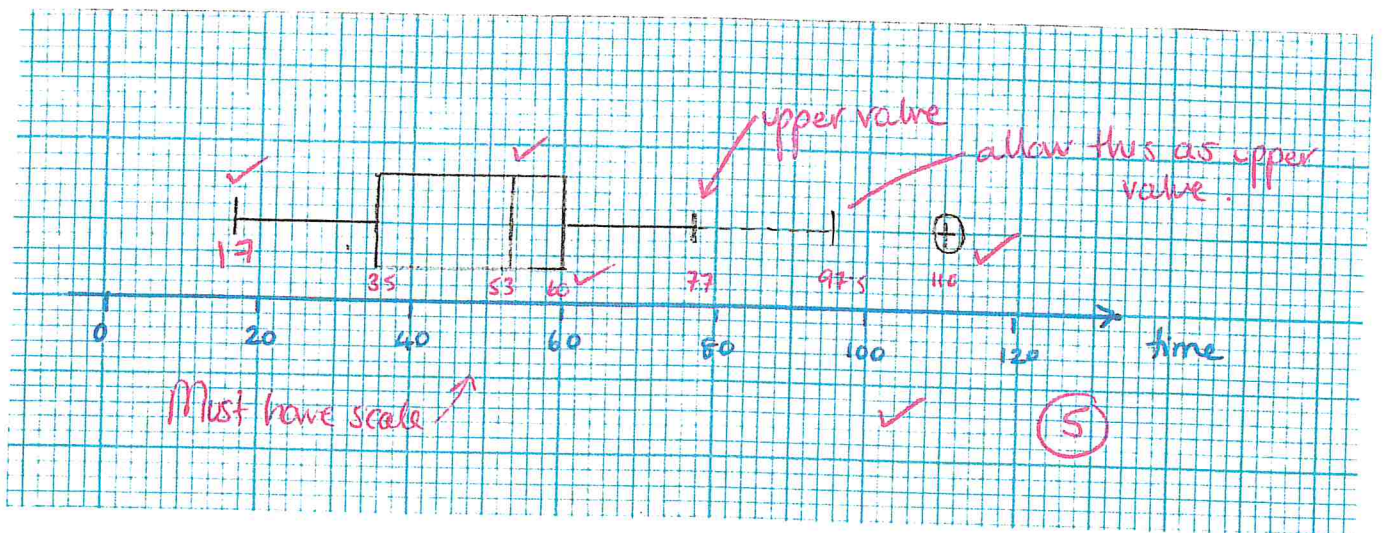 upper value
allow this as upper
value.
17
35 53 60 77 97.5 110
0 20 40 60 80 100 120 time
Must have scale
5